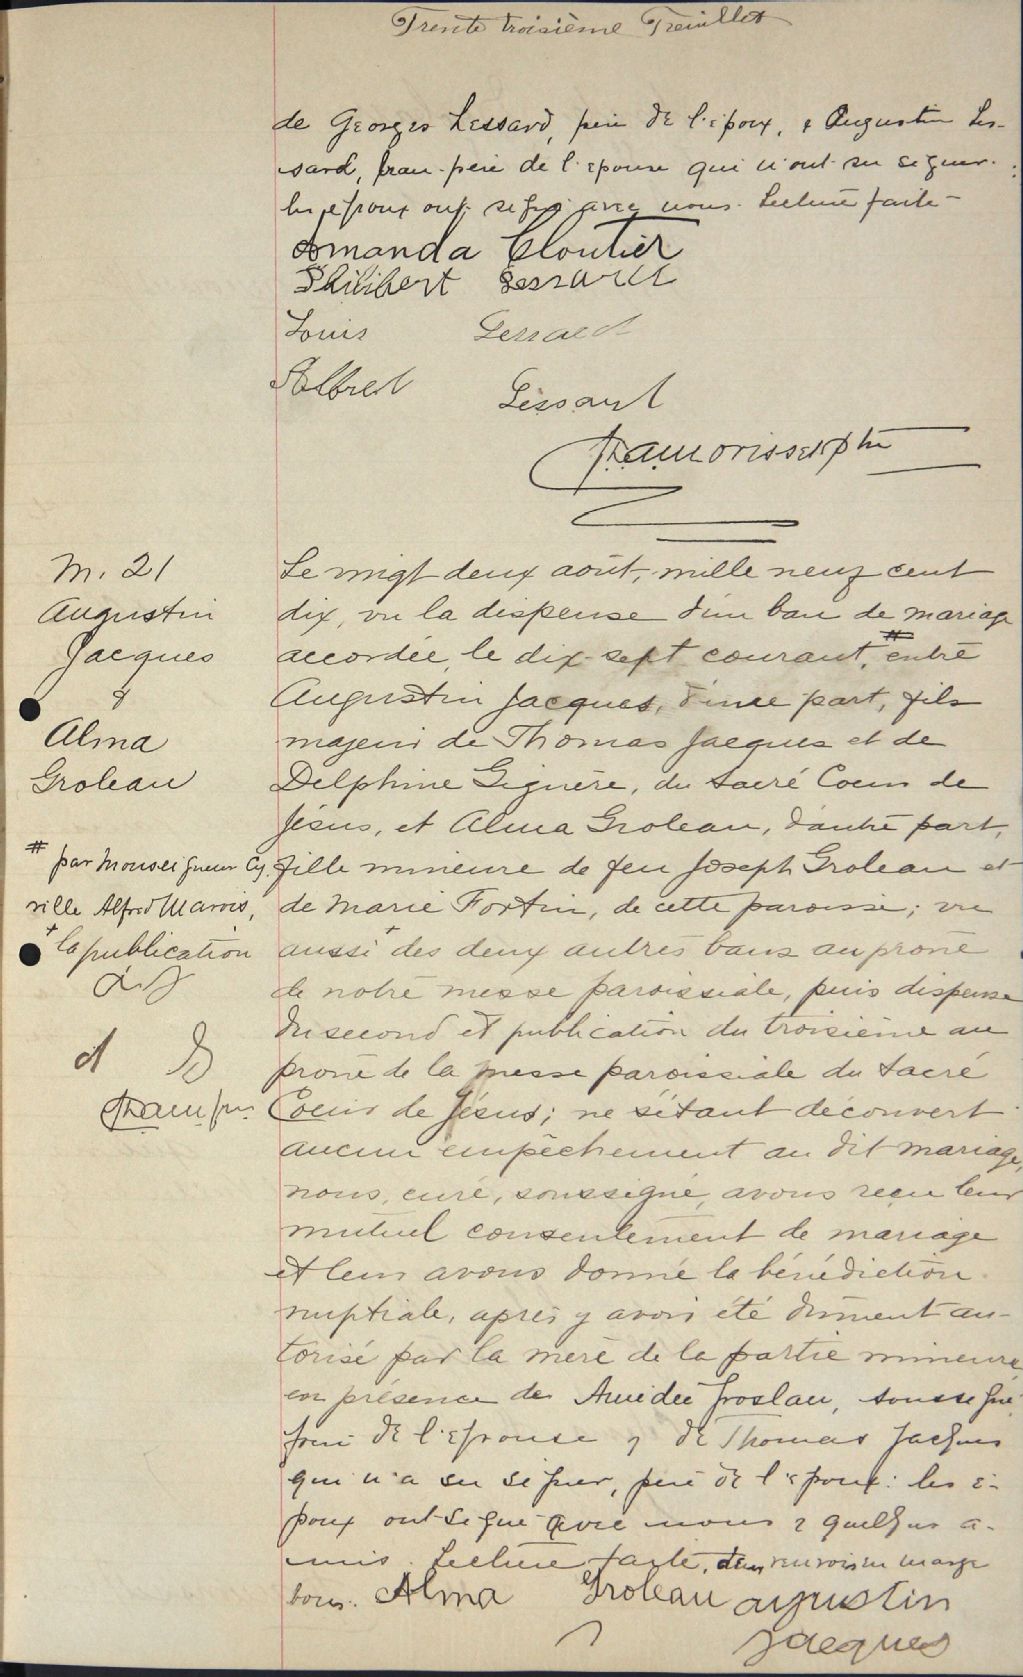 Trente troisième Feuillet
de Georges Lessard, père de l'époux, & Augustin Les-
sard, beau-père de l'épouse qui n'ont su signer.
les époux ont signé avec nous. Lecture faite -
Amanda Cloutier
Philibert Lessard
Louis Lessard
Albret Lessard
morisset ptre
M. 21
Augustin
Jacques
&
Alma
Groleau
# par Monseigneur Cy
rille Alfred Marois,
+ la publication
Le vingt deux août, mille neuf cent
dix, vu la dispense d'un ban de mariage
accordée, le dix-sept courant, # entre
Augustin Jacques, d'une part, fils
majeur de Thomas Jacques et de
Delphine Giguère, du Sacré Coeur de
Jésus, et Alma Groleau, d'autre part,
fille mineure de feu Joseph Groleau et
de Marie Fortin, de cette paroisse; vu
aussi + des deux autres bans au prône
de notre messe paroissiale, puis dispense
du second et publication du troisième au
prône de la messe paroissiale du Sacré
Coeur de Jésus; ne s'étant découvert
aucun empêchement au dit mariage,
nous, curé, soussigné, avons reçu leur
mutuel consentement de mariage
et leur avons donné la bénédiction
nuptiale, après y avoir été dûment au-
torisé par la mère de la partie mineure
en présence de Amédée Groslau, soussigné
frère de l'épouse & de Thomas Jacques
qui n'a su signer, père de l'époux: les é-
poux ont signé avec nous & quelques a-
mis. Lecture faite, renvois en marge
bons. Alma Groleau augustin
Jacques